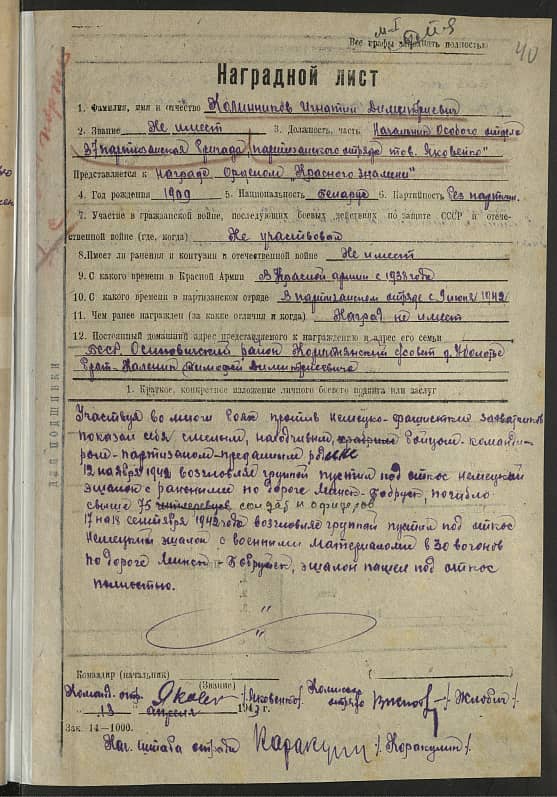 Все графы заполнять полностью
40
Наградной лист
1. Фамилия, имя и отчество Калинников Игнатий Димитриевич
2. Звание Не имеет 3. Должность, часть Начальник Особого отдела
37 партизанская бригада, партизанского отряда тов. Яковенко"
Представляется к Награде Орденом „Красного Знамени"
4. Год рождения 1909 5. Национальность беларус 6. Партийность без партии.
7. Участие в гражданской войне, последующих боевых действиях по защите СССР и отече-
ственной войне (где, когда) Не участвовал
8. Имеет ли ранения и контузии в отечественной войне Не имеет
9. С какого времени в Красной Армии В Красной армии с 193 года
10. С какого времени в партизанском отряде В партизанском отряде с 9 июня 1942
11. Чем ранее награжден (за какие отличия и когда) Наград не имеет
12. Постоянный домашний адрес представленого к награждению и адрес его семьи
БССР. Осиповичский район с/совет д.
брат Тимофей Димитриевич
1. Краткое, конкретное изложение личного боевого подвига или заслуг
Участвуя во многих боях против немецко-фашистких захватчиков
показал себя смелым, находчивым, бойцом-команди-
ром-партизаном-преданным родине
12 ноября 1942 возглавляя группой пустил под откос немецкий
эшалон с раненными по дороге Минск-Бобруск, погибло
свыше 75 солдат и офицеров
17 на 18 сентября 1942 года возглавляе группой пустил под откос
Немецкий эшалон с военными материалами в 30 вогонов
по дороге Минск-Бобруйск, эшалон пашел под откос
полностью.
для подшивки
Командир (начальник)
(Звание)
Команд. отр. Яковенко /Яковенко/ Комиссар отряда /Жлобич/
13 апреля 1943 г.
Зак. 14—1000.
Нач. штаба отряда Каракулин /Каракулин/